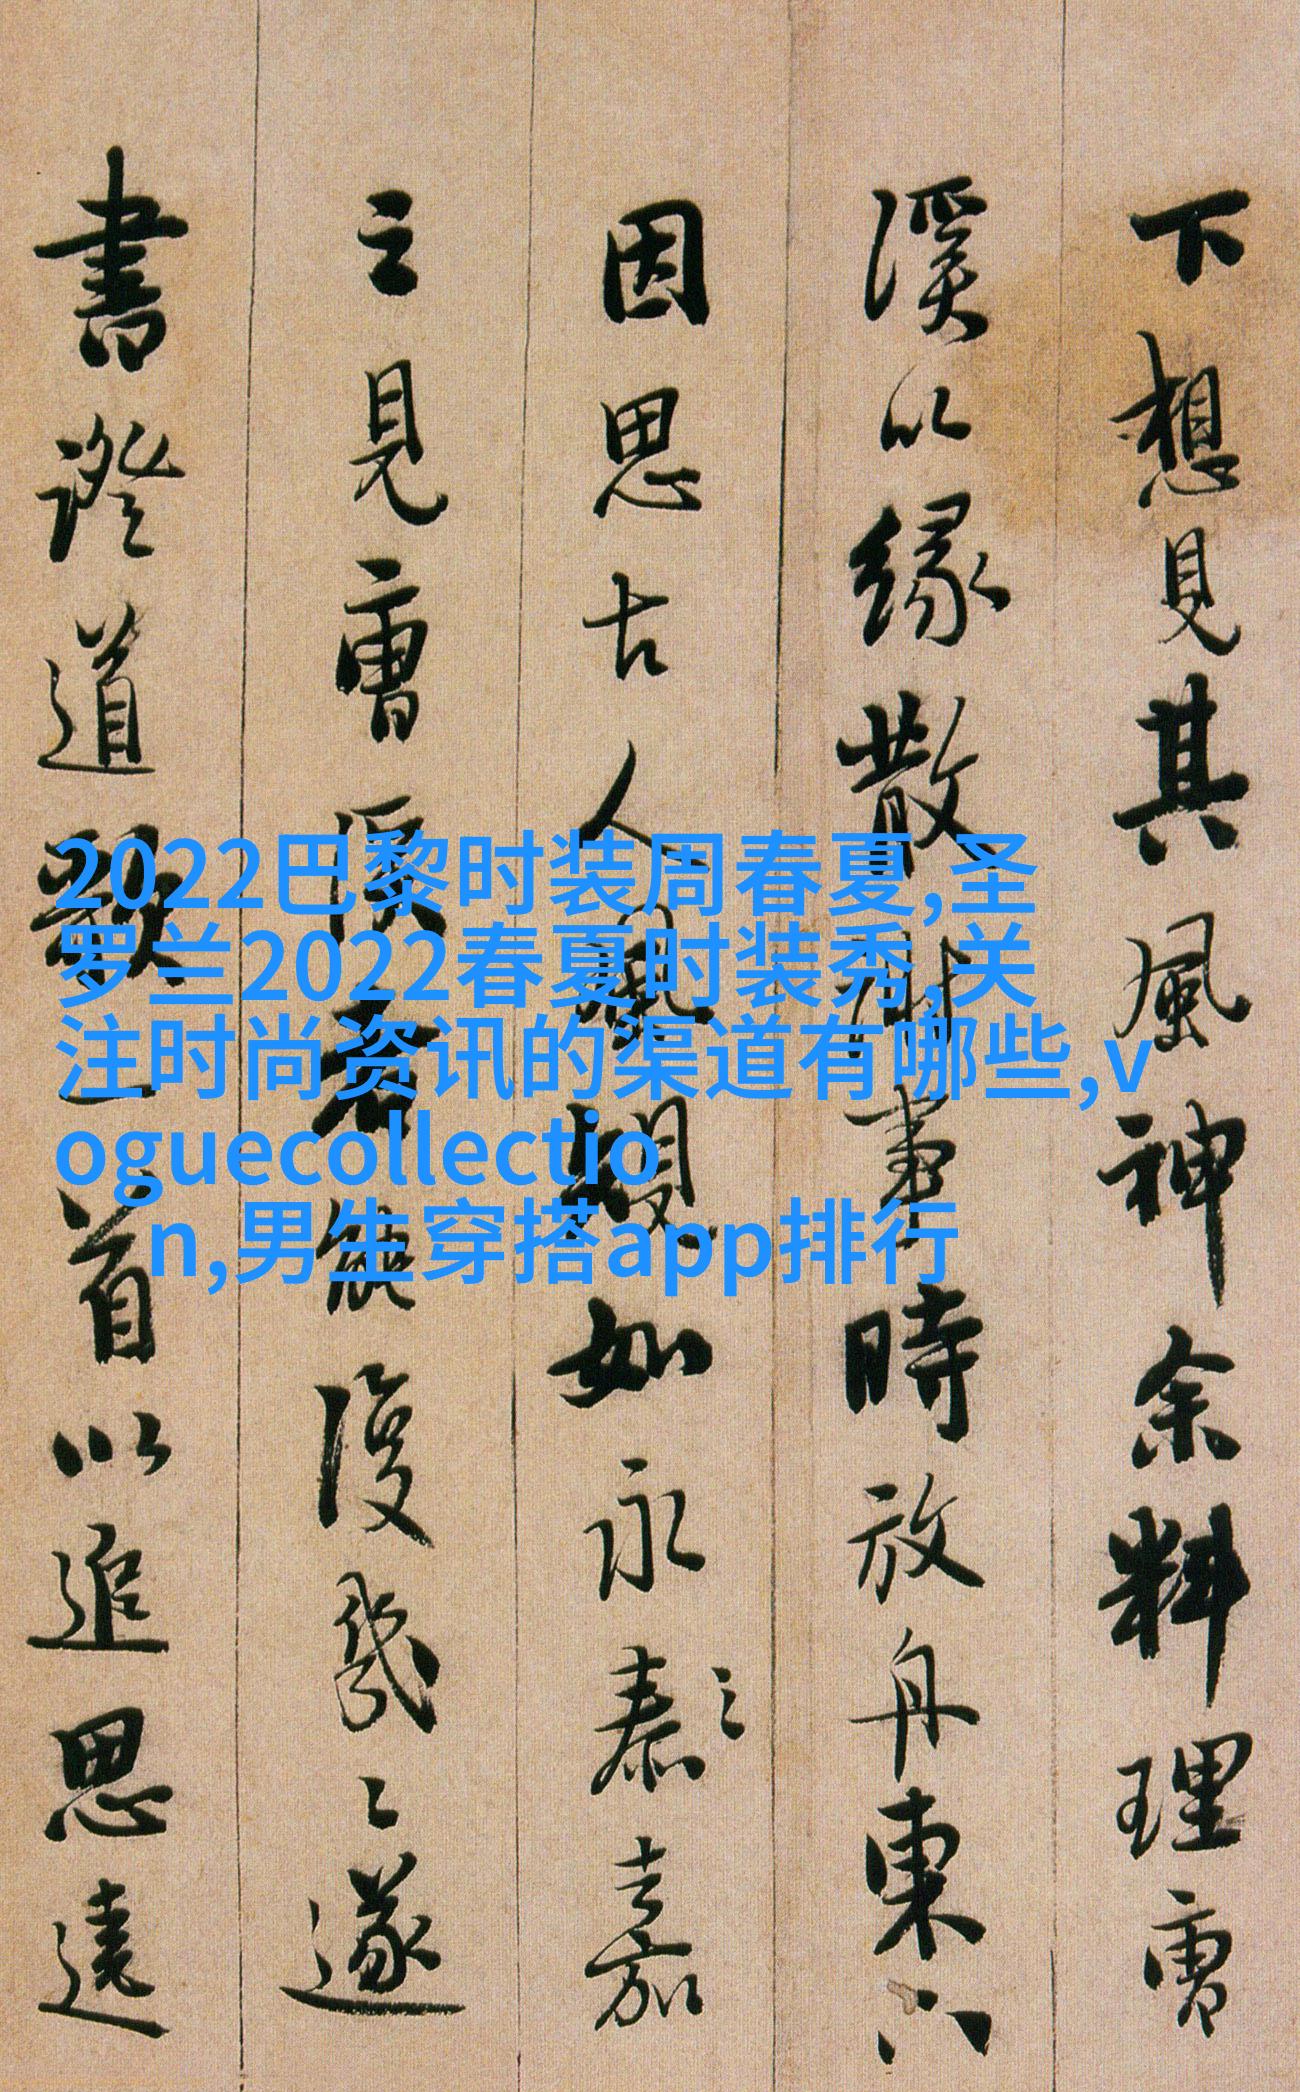 下想見其風神余料理曹
溪以緣散財事時放舟東
因思古人風規如永泰嘉
之見曹溪者能復幾遂
書證道歌一首以追思遠
2022巴黎时装周春夏,圣
罗兰2022春夏时装秀,关
注时尚资讯的渠道有哪些,v
oguecollectio
n,男生穿搭app排行